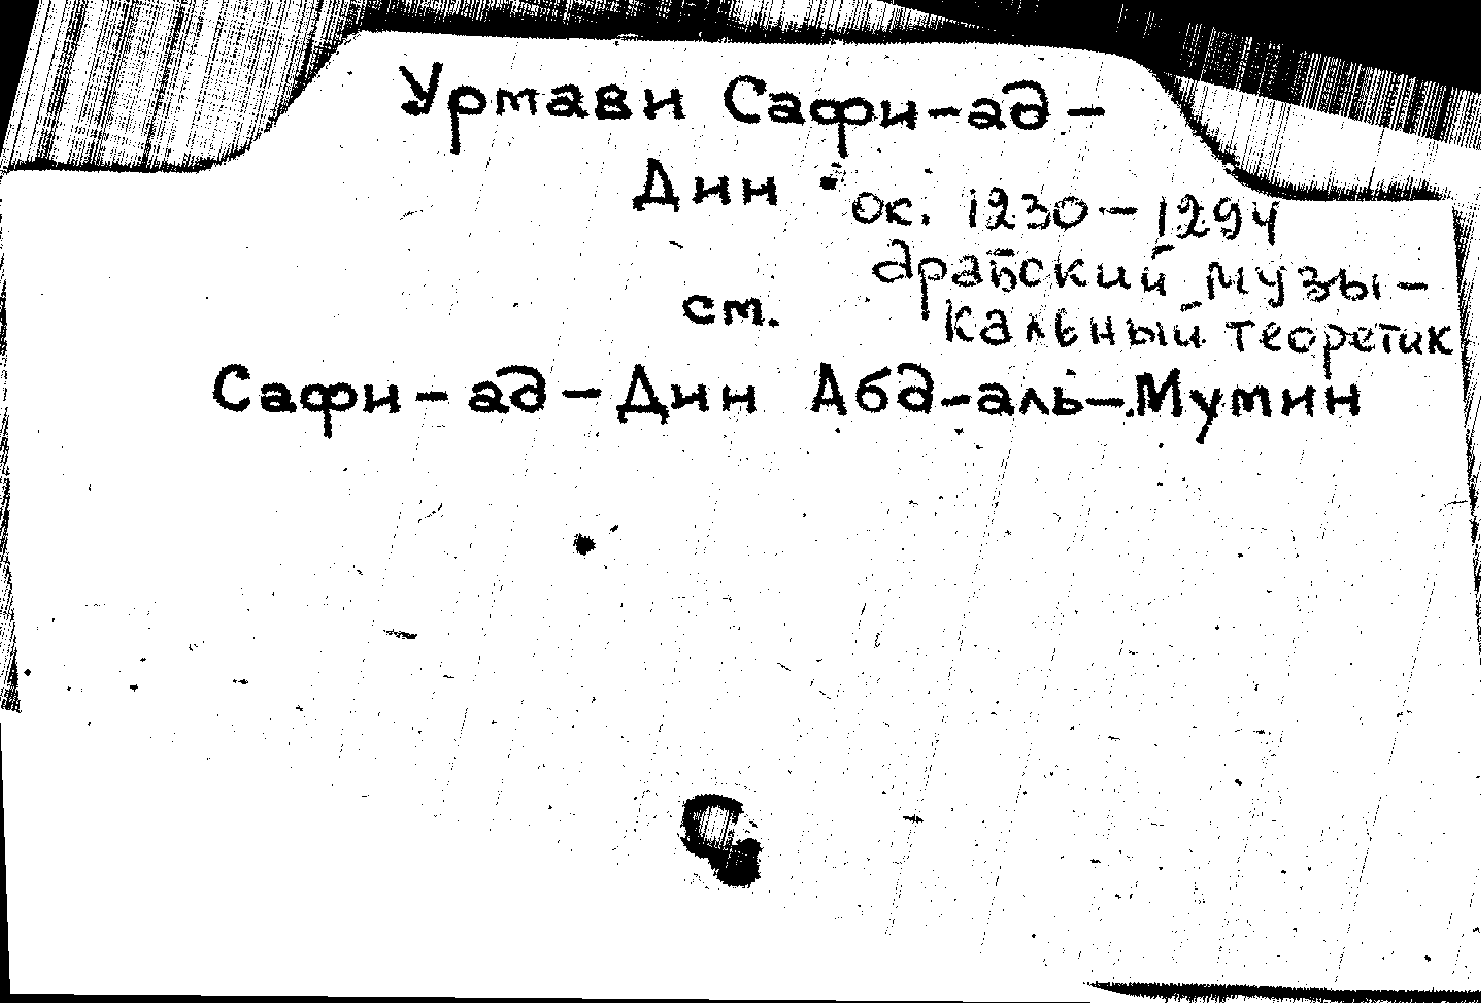 Урмави Сафи-ад-
Дин
ок. 1230-1294
арабский музы-
см.
кальный теоретик
Сафи-ад-Дин Абд-аль-Мумин